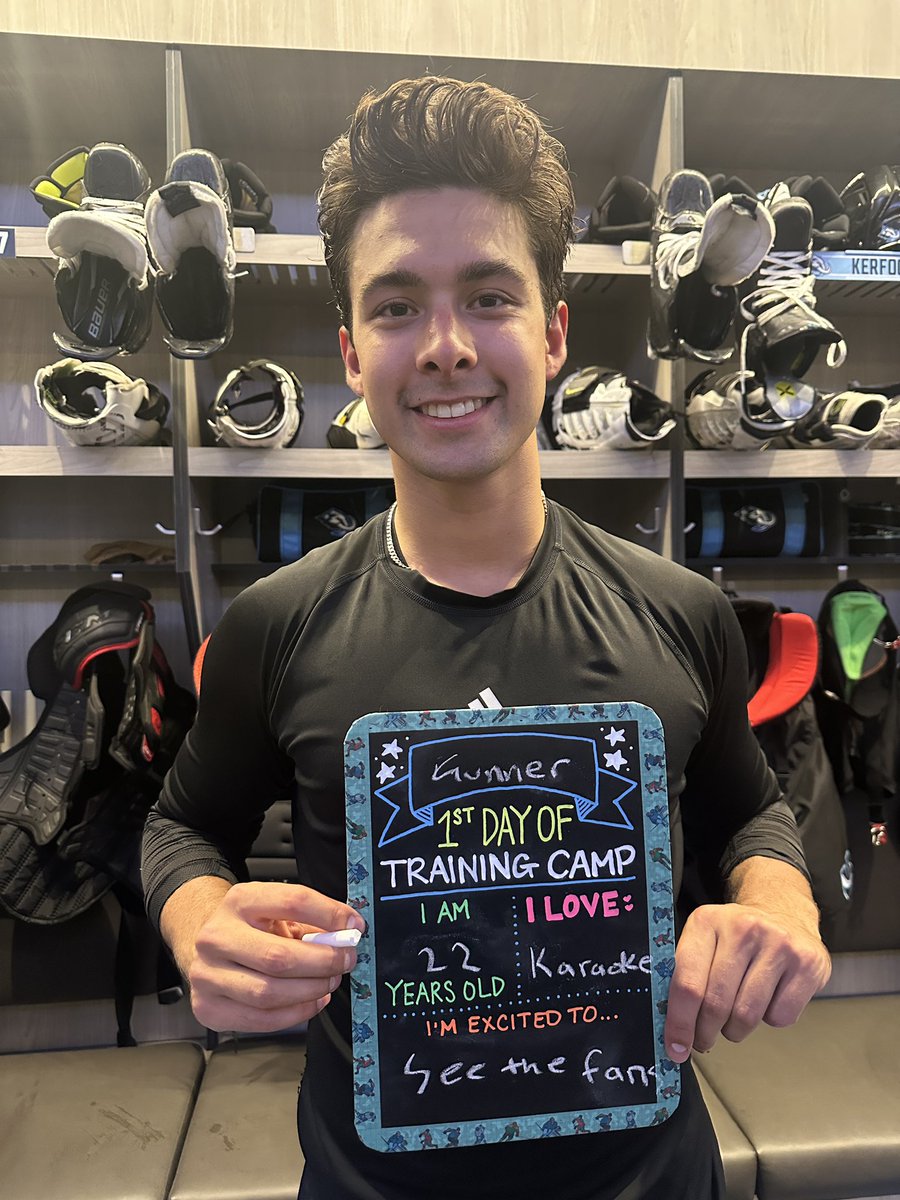 BAUER
7
KERFOO
Gunner
1ST DAY OF
TRAINING CAMP
I AM
22
YEARS OLD
I LOVE:
Karaoke
I'M EXCITED TO...
See the fans